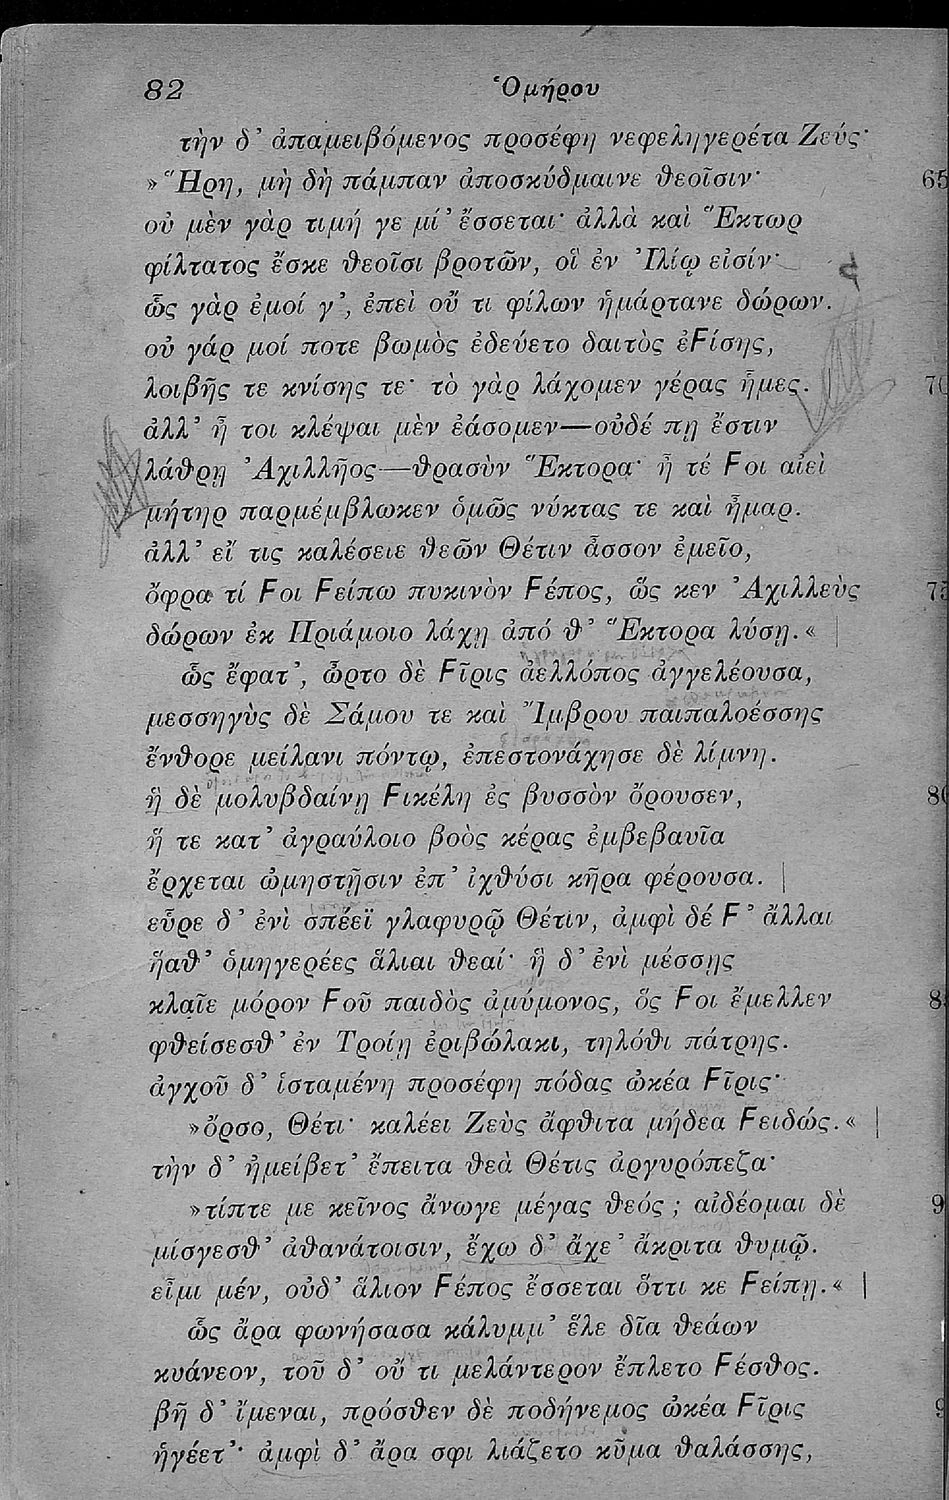 82 Ὁμήρου
τὴν δ’ ἀπαμειβόμενος προσέφη νεφεληγερέτα Ζεύς·
»Ἥρη, μὴ δὴ πάμπαν ἀποσκύδμαινε θεοῖσιν· 65
οὐ μὲν γὰρ τιμή γε μί’ ἔσσεται· ἀλλὰ καὶ Ἕκτωρ
φίλτατος ἔσκε θεοῖσι βροτῶν, οἳ ἐν Ἰλίῳ εἰσίν·
ὣς γὰρ ἐμοί γ’, ἐπεὶ οὔ τι φίλων ἡμάρτανε δώρων.
οὐ γάρ μοί ποτε βωμὸς ἐδεύετο δαιτὸς ἐϜίσης,
λοιβῆς τε κνίσης τε· τὸ γὰρ λάχομεν γέρας ἦμες. 70
ἀλλ’ ἦ τοι κλέψαι μὲν ἐάσομεν—οὐδέ πῃ ἔστιν
λάθρῃ Ἀχιλλῆος—θρασὺν Ἕκτορα· ἦ τέ Ϝοι αἰεὶ
μήτηρ παρμέμβλωκεν ὁμῶς νύκτας τε καὶ ἦμαρ.
ἀλλ’ εἴ τις καλέσειε θεῶν Θέτιν ἆσσον ἐμεῖο,
ὄφρα τί Ϝοι Ϝείπω πυκινὸν Ϝέπος, ὥς κεν Ἀχιλλεὺς 75
δώρων ἐκ Πριάμοιο λάχῃ ἀπό θ’ Ἕκτορα λύσῃ.«
ὣς ἔφατ’, ὦρτο δὲ Ϝῖρις ἀελλόπος ἀγγελέουσα,
μεσσηγὺς δὲ Σάμου τε καὶ Ἴμβρου παιπαλοέσσης
ἔνθορε μείλανι πόντῳ, ἐπεστονάχησε δὲ λίμνη.
ἣ δὲ μολυβδαίνῃ Ϝικέλη ἐς βυσσὸν ὄρουσεν, 80
ἥ τε κατ’ ἀγραύλοιο βοὸς κέρας ἐμβεβαυῖα
ἔρχεται ὠμηστῇσιν ἐπ’ ἰχθύσι κῆρα φέρουσα.
εὗρε δ’ ἐνὶ σπέεϊ γλαφυρῷ Θέτιν, ἀμφὶ δέ Ϝ’ ἄλλαι
ἥαθ’ ὁμηγερέες ἅλιαι θεαί· ἣ δ’ ἐνὶ μέσσῃς
κλαῖε μόρον Ϝοῦ παιδὸς ἀμύμονος, ὅς Ϝοι ἔμελλεν 8
φθείσεσθ’ ἐν Τροίῃ ἐριβώλακι, τηλόθι πάτρης.
ἀγχοῦ δ’ ἱσταμένη προσέφη πόδας ὠκέα Ϝῖρις·
»ὄρσο, Θέτι· καλέει Ζεὺς ἄφθιτα μήδεα Ϝειδώς.«
τὴν δ’ ἠμείβετ’ ἔπειτα θεὰ Θέτις ἀργυρόπεζα·
»τίπτε με κεῖνος ἄνωγε μέγας θεός; αἰδέομαι δὲ 9
μίσγεσθ’ ἀθανάτοισιν, ἔχω δ’ ἄχε’ ἄκριτα θυμῷ.
εἶμι μέν, οὐδ’ ἅλιον Ϝέπος ἔσσεται ὅττι κε Ϝείπῃ.«
ὣς ἄρα φωνήσασα κάλυμμ’ ἕλε δῖα θεάων
κυάνεον, τοῦ δ’ οὔ τι μελάντερον ἔπλετο Ϝέσθος.
βῆ δ’ ἴμεναι, πρόσθεν δὲ ποδήνεμος ὠκέα Ϝῖρις 9
ἡγέετ’· ἀμφὶ δ’ ἄρα σφι λιάζετο κῦμα θαλάσσης,